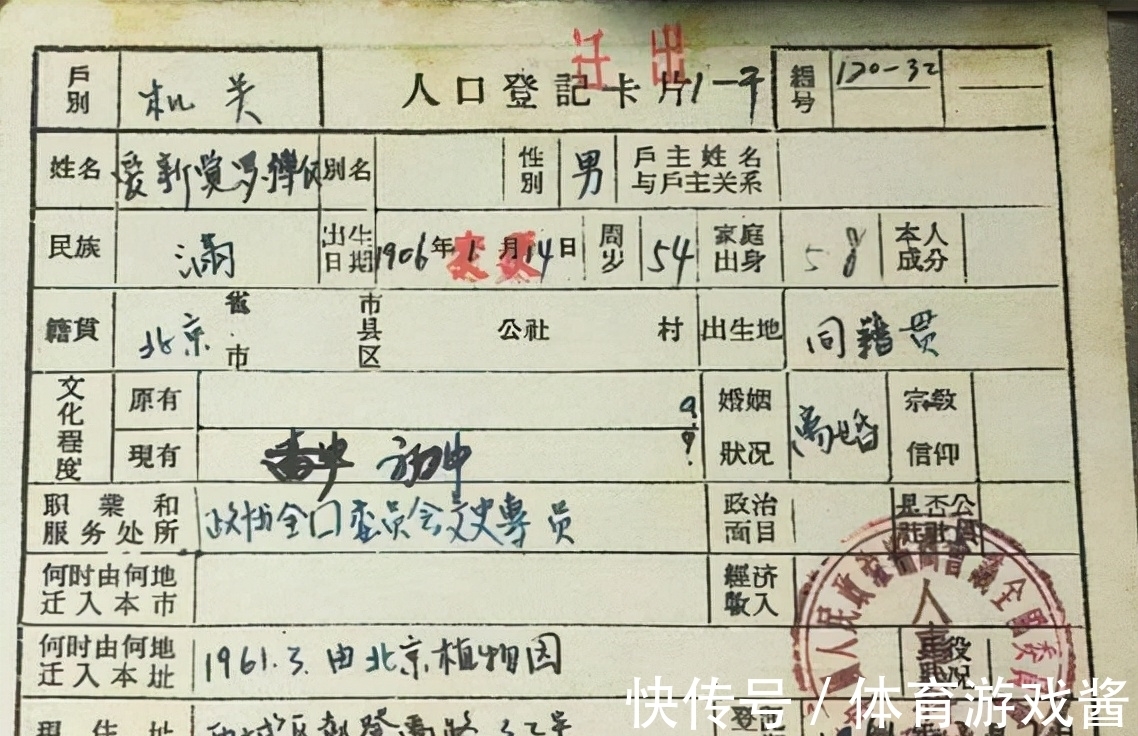 迁出
戶別 机关 人口登記卡片 編号 120-32
姓名 爱新觉罗 別名 性別 男 戶主姓名与戶主关系
民族 滿 出生日期 1906年1月14日 周岁 54 家庭出身 58 本人成分
籍貫 北京 省市 市县区 公社 村 出生地 同籍贯
文化程度 原有 婚姻狀况 离婚 宗教信仰
現有 初中
职業和服务处所 政协全囗委员会文史專员 政治面目 是否公社社員
何时由何地迁入本市 經济收入
何时由何地迁入本址 1961.3.由北京植物园 役况
現住址 登記
快传号/体育游戏酱